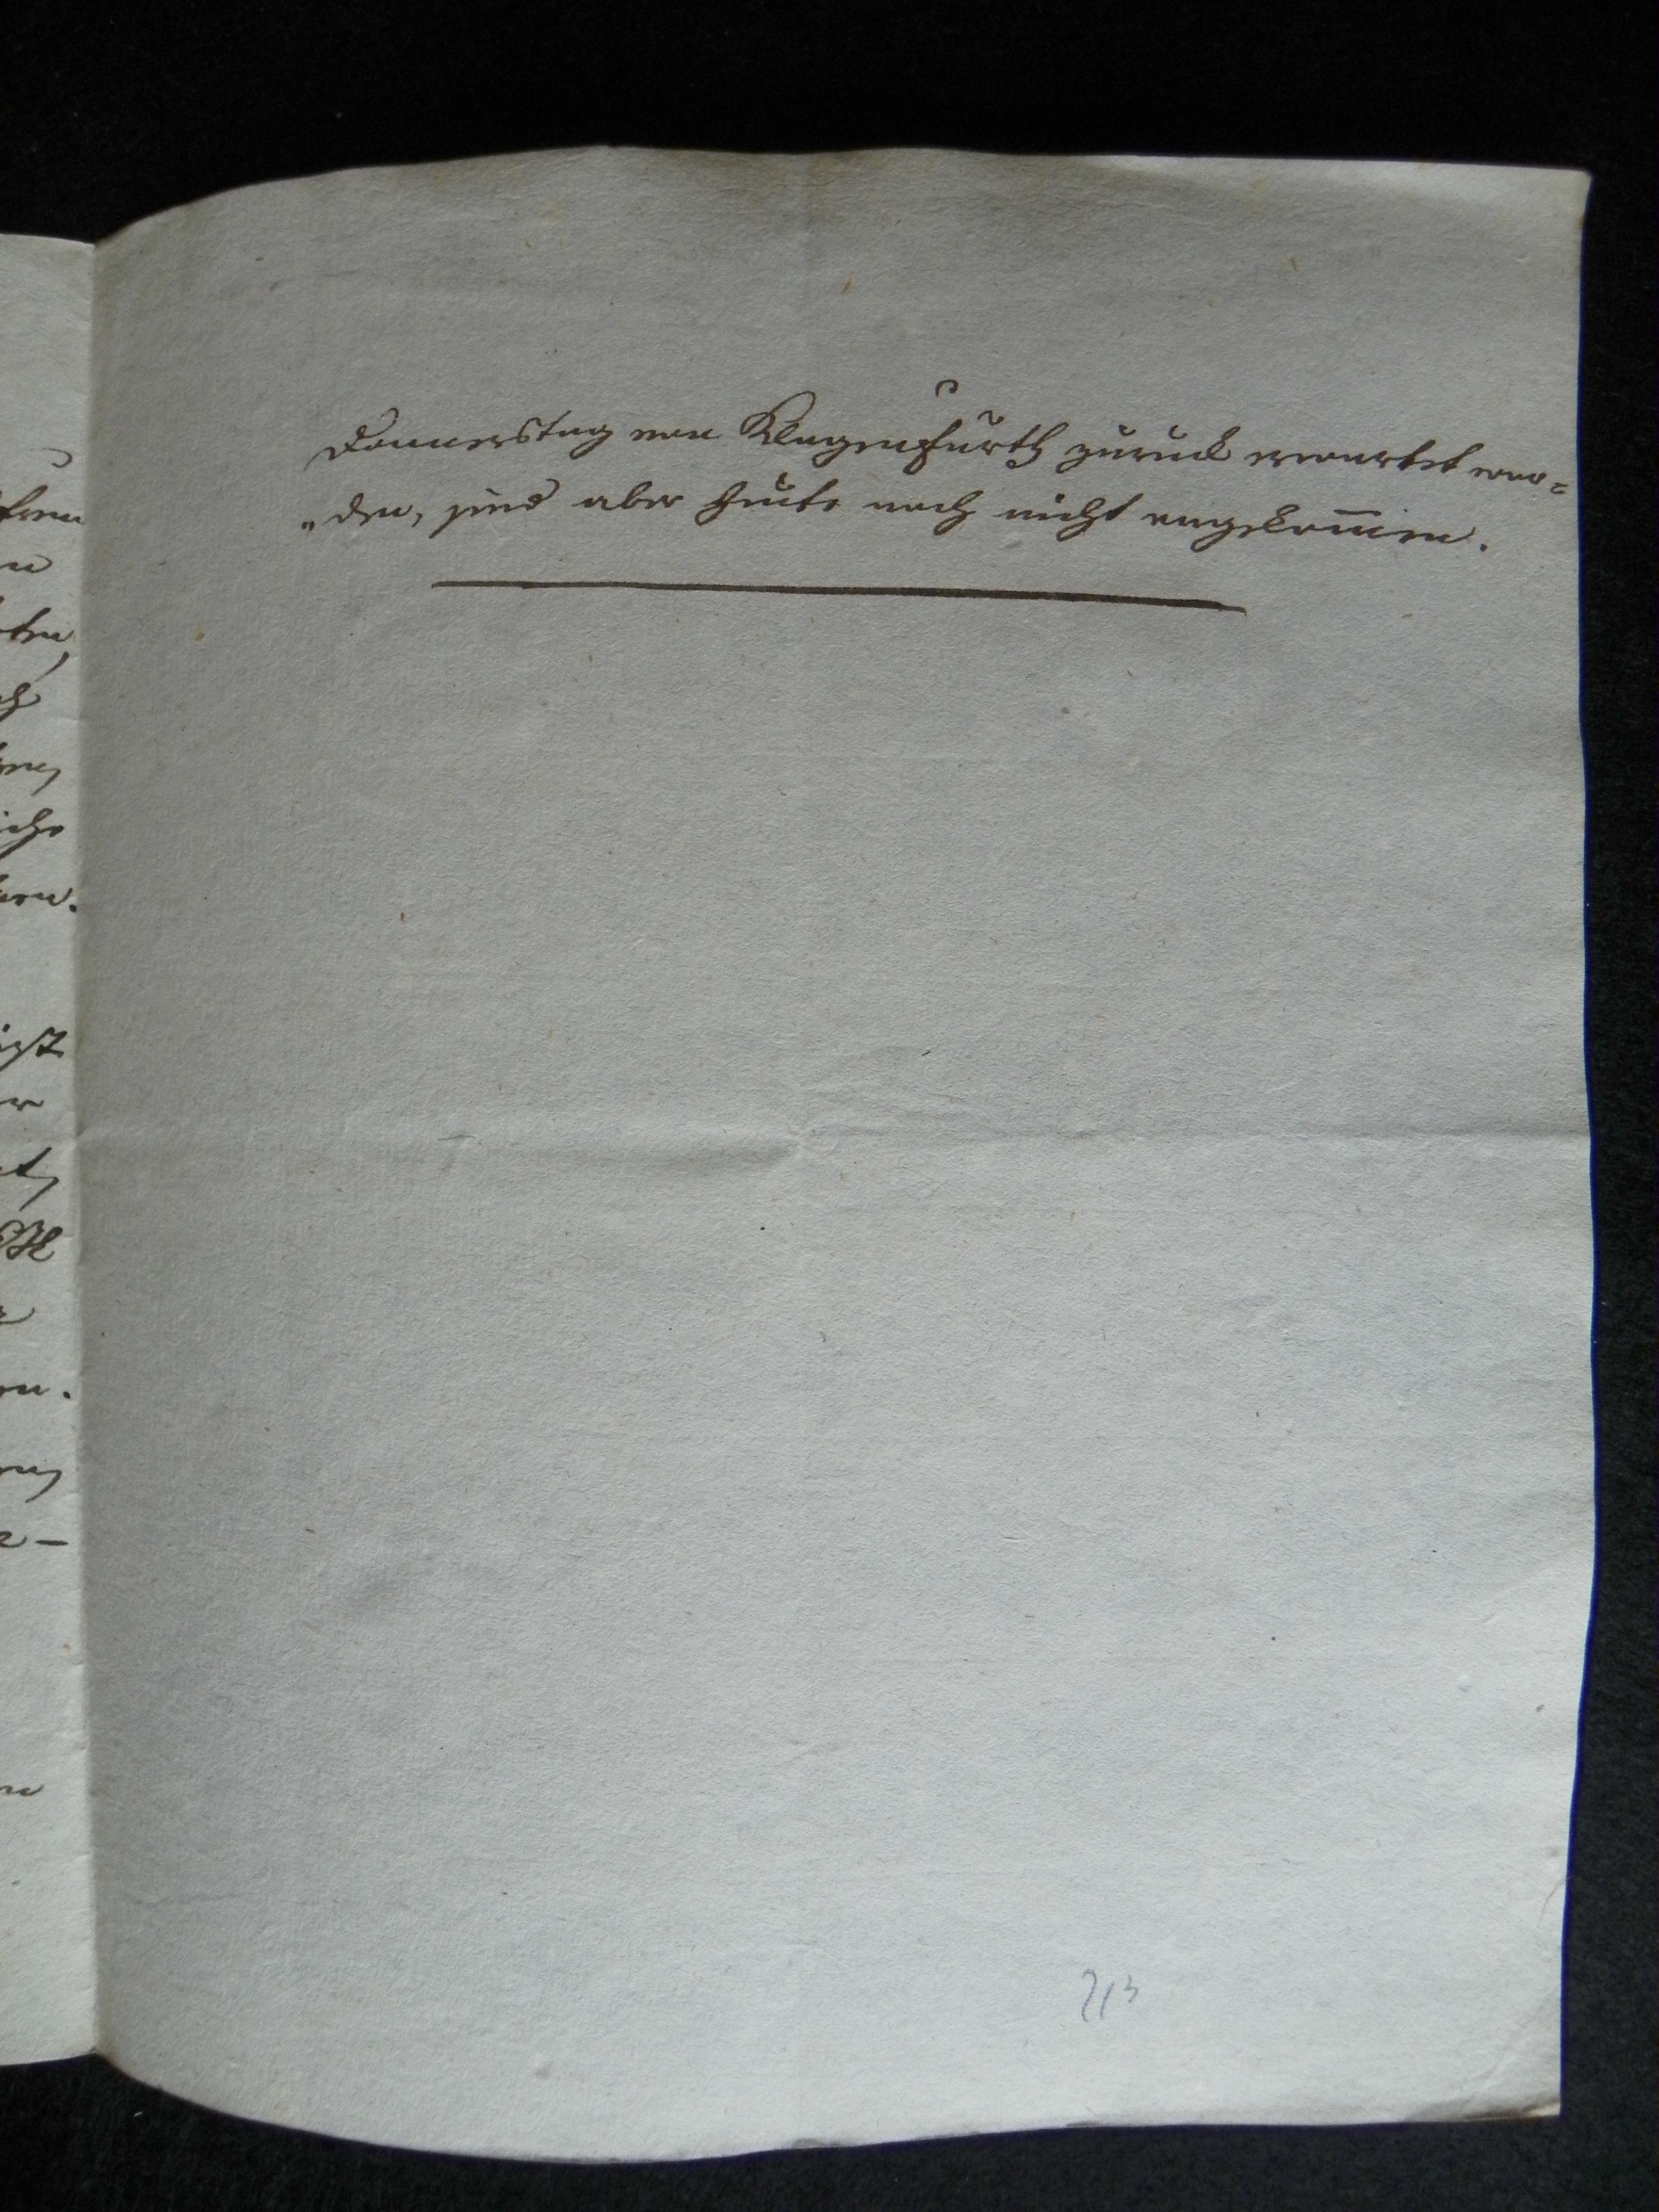 Donnerstag von Klagenfurth zurück erwartet wor=
„den, sind aber heute noch nicht angekom̅en.
213